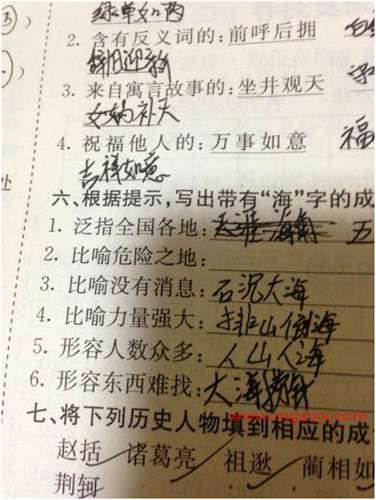 ③
2. 含有反义词的: 前呼后拥
辞旧迎新
3. 来自寓言故事的: 坐井观天
女娲补天
4. 祝福他人的: 万事如意 福
吉祥如意
处
六、根据提示,写出带有“海”字的成
1. 泛指全国各地: 天涯海角 五
2. 比喻危险之地:
3. 比喻没有消息: 石沉大海
4. 比喻力量强大: 排山倒海
5. 形容人数众多: 人山人海
6. 形容东西难找: 大海捞针
七、将下列历史人物填到相应的成
赵括 诸葛亮 祖逖 蔺相如
荆轲